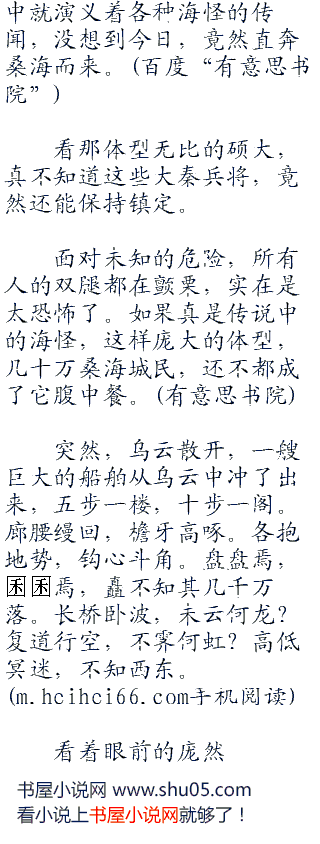 中就演义着各种海怪的传
闻，没想到今日，竟然直奔
桑海而来。(百度“有意思书
院”)
看那体型无比的硕大，
真不知道这些大秦兵将，竟
然还能保持镇定。
面对未知的危险，所有
人的双腿都在颤栗，实在是
太恐怖了。如果真是传说中
的海怪，这样庞大的体型，
几十万桑海城民，还不都成
了它腹中餐。(有意思书院)
突然，乌云散开，一艘
巨大的船舶从乌云中冲了出
来，五步一楼，十步一阁。
廊腰缦回，檐牙高啄。各抱
地势，钩心斗角。盘盘焉，
囷囷焉，矗不知其几千万
落。长桥卧波，未云何龙？
复道行空，不霁何虹？高低
冥迷，不知西东。
(m.hcihci66.com手机阅读)
看着眼前的庞然
书屋小说网 www.shu05.com
看小说上书屋小说网就够了！